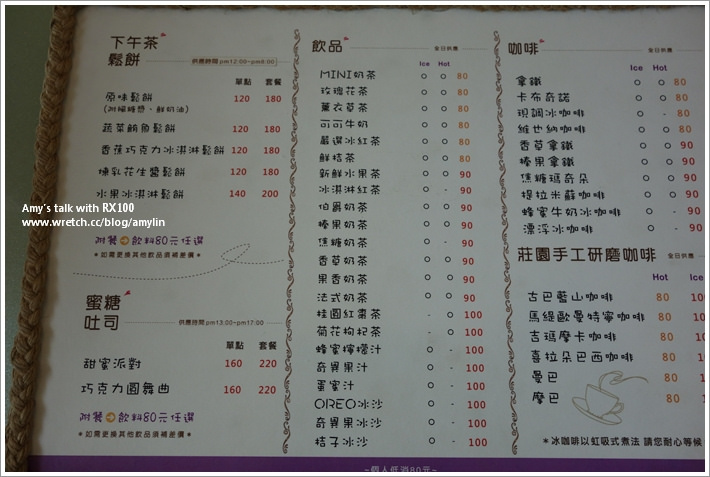 下午茶
鬆餅
供應時間pm12:00~pm8:00
單點 套餐
原味鬆餅 120 180
(附楓糖醬、鮮奶油)
蔬菜鮪魚鬆餅 120 180
香蕉巧克力冰淇淋鬆餅 120 180
煉乳花生醬鬆餅 120 180
水果冰淇淋鬆餅 140 200
附餐→飲料80元任選
*如需更換其他飲品須補差價*
Amy's talk with RX100
www.wretch.cc/blog/amylin
蜜糖
吐司
供應時間pm13:00~pm17:00
單點 套餐
甜蜜派對 160 220
巧克力圓舞曲 160 220
附餐→飲料80元任選
*如需更換其他飲品須補差價*
飲品 全日供應
Ice Hot
MINI奶茶 ○ ○ 80
玫瑰花茶 ○ ○ 80
薰衣草茶 ○ ○ 80
可可牛奶 ○ ○ 80
嚴選冰紅茶 ○ - 80
鮮桔茶 ○ ○ 80
新鮮水果茶 ○ ○ 90
冰淇淋紅茶 ○ - 90
伯爵奶茶 ○ ○ 90
榛果奶茶 ○ ○ 90
焦糖奶茶 ○ ○ 90
香草奶茶 ○ ○ 90
果香奶茶 ○ ○ 90
法式奶茶 ○ ○ 90
桂圓紅棗茶 - ○ 100
菊花枸杞茶 - ○ 100
蜂蜜檸檬汁 ○ - 100
奇異果汁 ○ - 100
蛋蜜汁 ○ - 100
OREO冰沙 ○ - 100
奇異果冰沙 ○ - 100
桔子冰沙 ○ - 100
咖啡 全日供應
Ice Hot
拿鐵 ○ ○ 80
卡布奇諾 ○ ○ 80
現調冰咖啡 ○ - 80
維也納咖啡 ○ ○ 80
香草拿鐵 ○ ○ 90
榛果拿鐵 ○ ○ 90
焦糖瑪奇朵 ○ ○ 90
提拉米蘇咖啡 ○ ○ 90
蜂蜜牛奶冰咖啡 ○ - 90
漂浮冰咖啡 ○ - 90
莊園手工研磨咖啡 全日供應
Hot Ice
古巴藍山咖啡 80
馬緹歐曼特寧咖啡 80
吉瑪摩卡咖啡 80
喜拉朵巴西咖啡 80
曼巴 80
摩巴 80
*冰咖啡以虹吸式煮法 請您耐心等候
~個人低消80元~